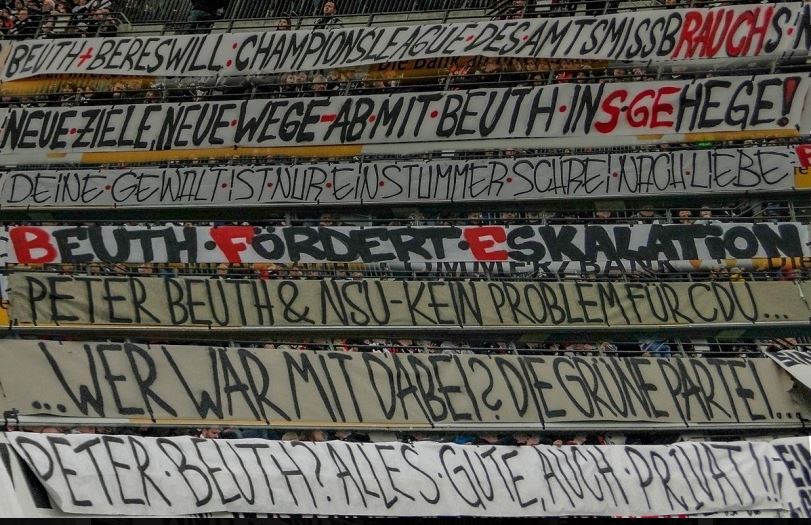 BEUTH+BERESWILL:CHAMPIONSLEAGUE·DES·AMTSMISSBRAUCHS!
NEUE·ZIELE,NEUE·WEGE-AB·MIT·BEUTH·INS·GEHEGE!
DEINE·GEWALT·IST·NUR·EIN·STUMMER·SCHREI·NACH·LIEBE
BEUTH·FÖRDERT·ESKALATION
PETER BEUTH & NSU-KEIN PROBLEM FÜR CDU...
...WER WAR MIT DABEI? DIE GRÜNE PARTEI...
PETER·BEUTH? ALLES·GUTE, AUCH·PRIVAT!!